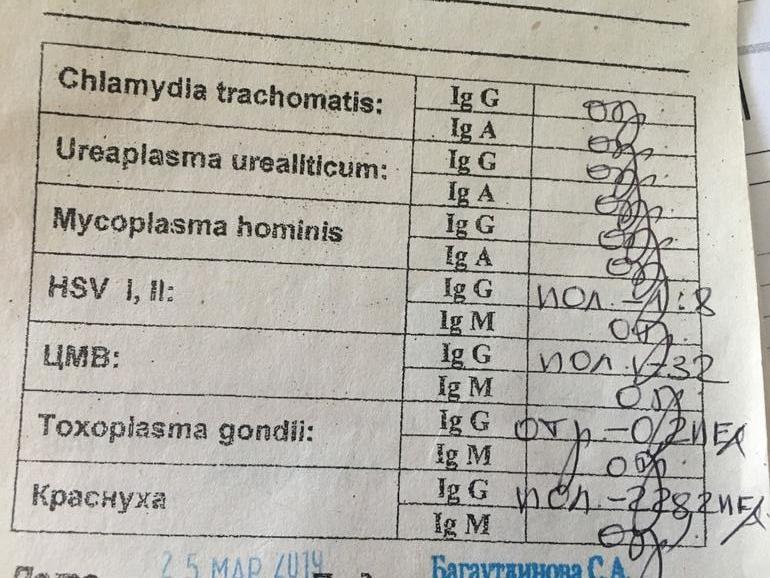 Chlamydia trachomatis: Ig G отр
Ig A отр
Ureaplasma urealiticum: Ig G отр
Ig A отр
Mycoplasma hominis Ig G отр
Ig A отр
HSV I, II: Ig G пол. - 1:8
Ig M отр
ЦМВ: Ig G пол.
Ig M отр
Toxoplasma gondii: Ig G отр. - 0,2 МЕд
Ig M отр
Краснуха Ig G пол. -
Ig M отр
25 МАР 2019
Багаутдинова С.А.